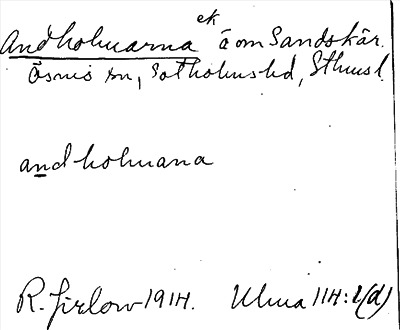 Andholmarna ek ö om Sandskär.
Ösmo sn, Sotholms hd, Sthmsl.
andholmana
R. Jirlow 1914. Ulma 114:1(d)